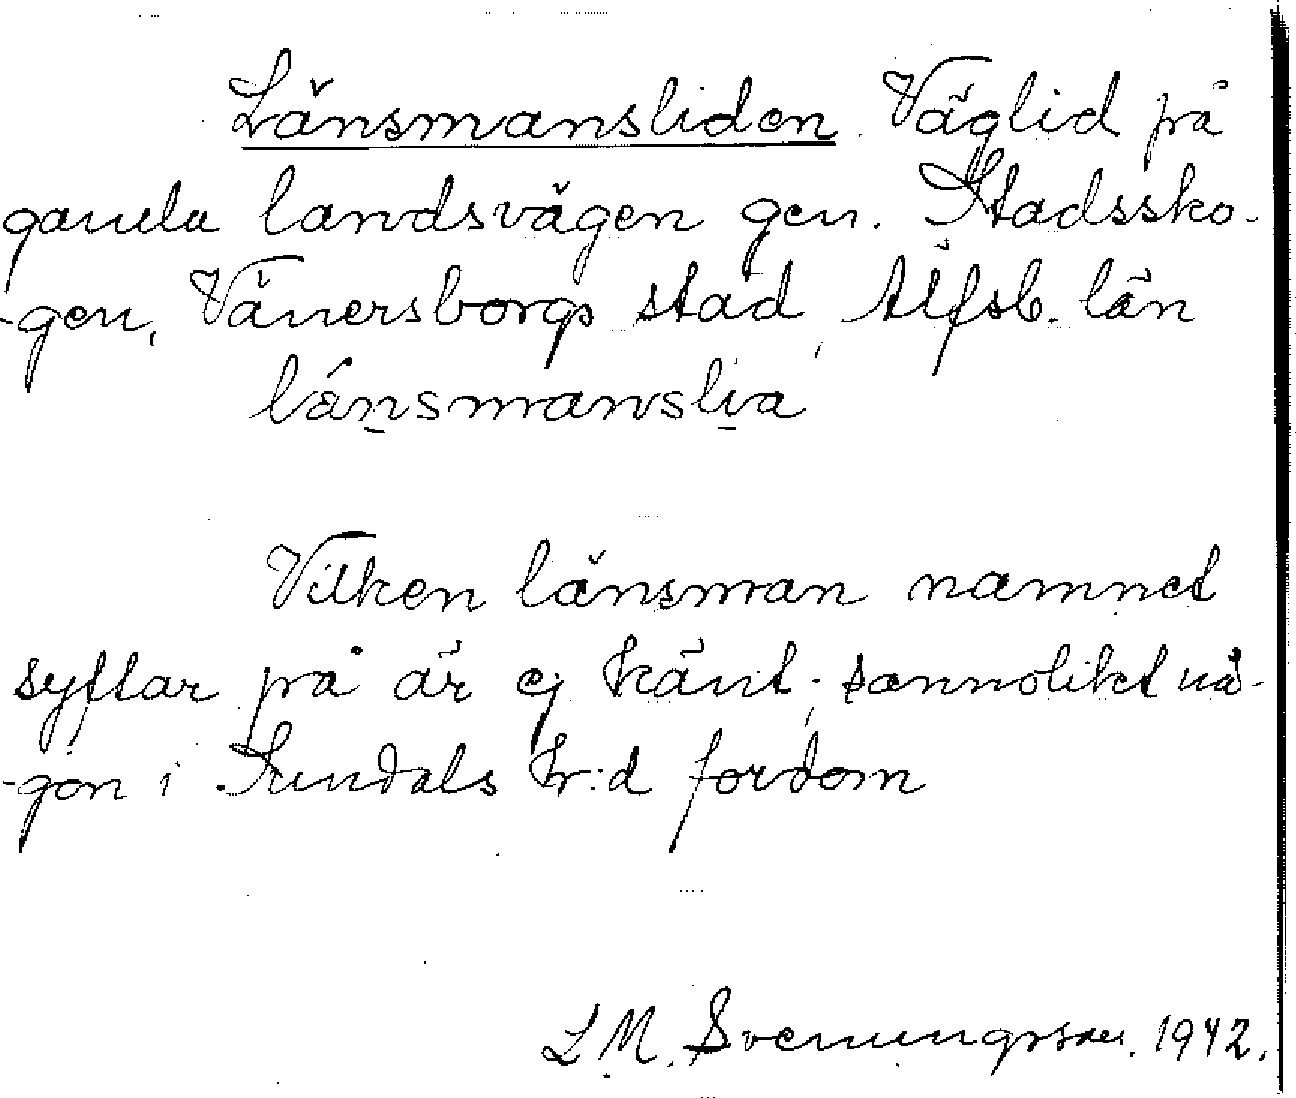 Länsmansliden. Väglid på
gamla landsvägen gen. Stadssko-
-gen, Vänersborgs stad, Älfsb. län
lánsmanslia
Vilken länsman namnet
syftar på är ej känt; sannolikt nå-
-gon i Sundals hr:d fordom
L. M. Svenungsson. 1942.